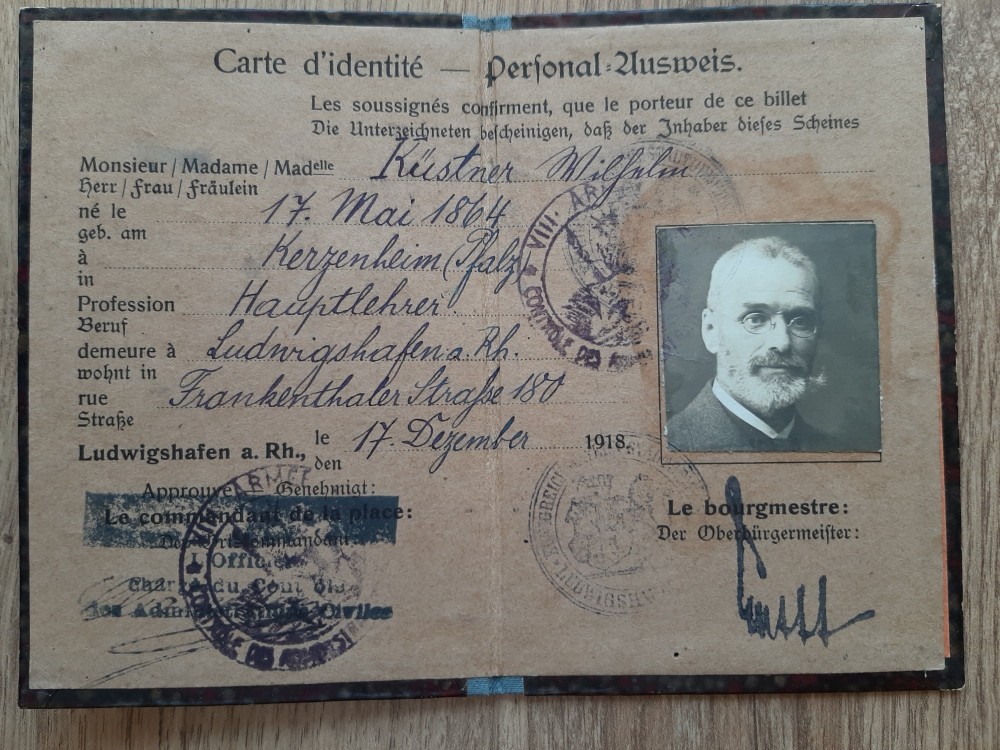 Carte d'identité — Personal-Ausweis.
Les soussignés confirment, que le porteur de ce billet
Die Unterzeichneten bescheinigen, daß der Inhaber dieses Scheines
Monsieur / Madame / Madelle Küstner Wilhelm
Herr / Frau / Fräulein
né le 17. Mai 1864
geb. am
à Kerzenheim (Pfalz)
in
Profession Hauptlehrer.
Beruf
demeure à Ludwigshafen a. Rh.
wohnt in
rue Frankenthaler Straße 180
Straße
Ludwigshafen a. Rh., le 17. Dezember 1918.
den
Approuvé — Genehmigt:
Le commandant de la place:
Der Ortskommandant:
L'Officier
chargé du
des Administrations Civiles
Le bourgmestre:
Der Oberbürgermeister:
VIII. ARMÉE
CONTRÔLE DES
ARMÉE
CONTRÔLE DES